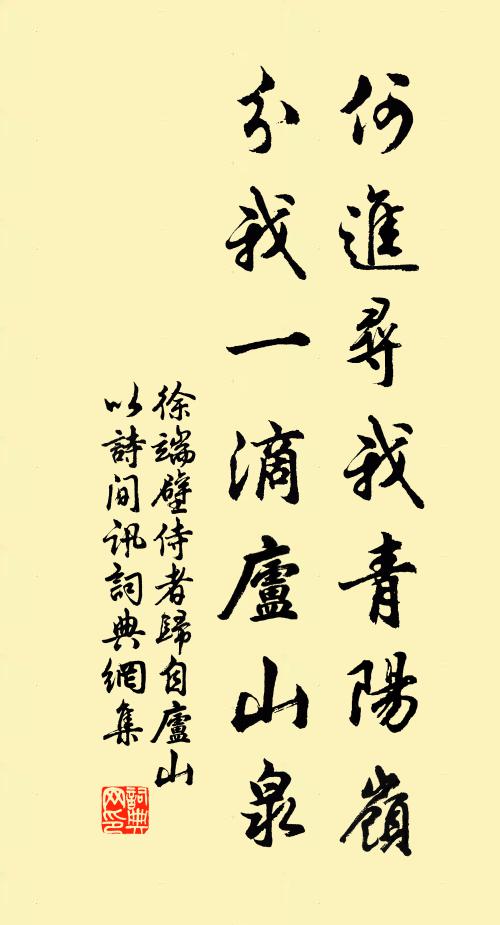 何進尋我青陽嶺
分我一滴廬山泉
徐端壁侍者歸自廬山
以詩間訊詞典網集
詞典
网印